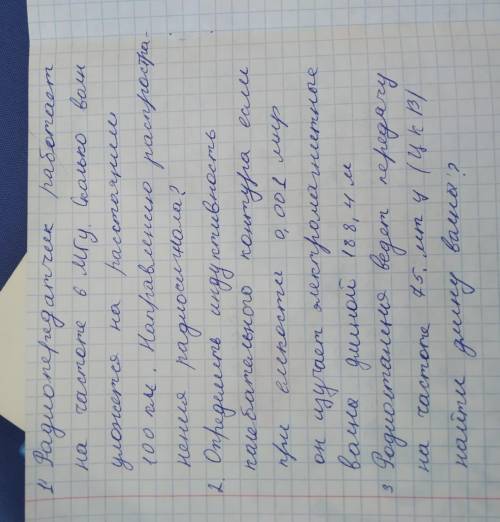 1 Радиопередатчик работает
на частоте 6 МГц. Сколько волн
уложется на расстоянии
100 км. Направлению распростра-
нения радиосигнала?
2. Определить индуктивность
колебательного контура если
при емкости 0,001 мкр
он излучает электромагнитные
волны длиной 188,4 м
3 Радиостанция ведет передачу
на частоте 75. мгц (ЦКВ)
найти длину волны?